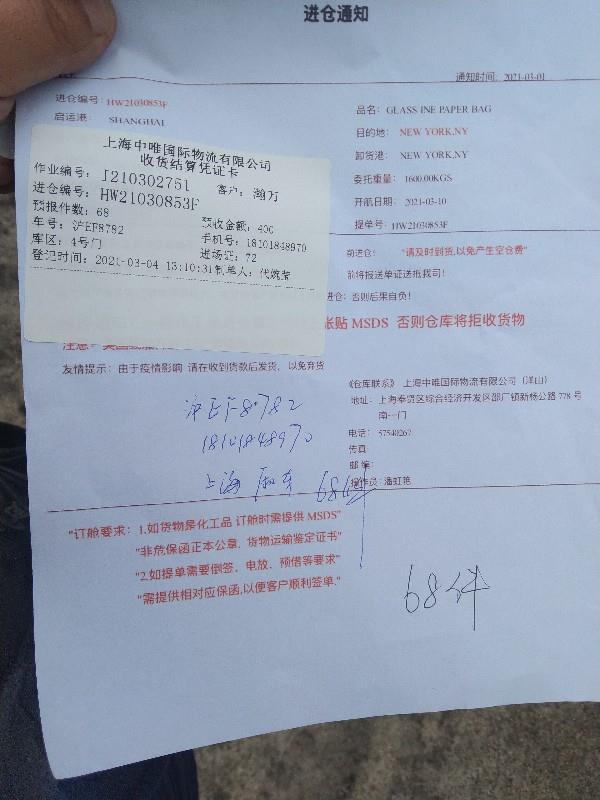 进仓通知
通知时间: 2021-03-01
进仓编号: HW21030853F
启运港: SHANGHAI
品名: GLASS INE PAPER BAG
目的地: NEW YORK,NY
卸货港: NEW YORK,NY
委托重量: 1600.00KGS
开航日期: 2021-03-10
提单号: HW21030853F
上海中唯国际物流有限公司
收货结算凭证卡
作业编号: J210302751 客户: 瀚万
进仓编号: HW21030853F
预报件数: 68 预收金额: 400
车号: 沪EF8782 手机号: 18101848970
库区: 4号门 进场证: 72
登记时间: 2021-03-04 13:10:31制单人: 代婉棠
前进仓: "请及时到货,以免产生空仓费"
前将报送单证送抵我司!
进仓: 否则后果自负!
张贴 MSDS 否则仓库将拒收货物
注意:
友情提示: 由于疫情影响 请在收到货款后发货, 以免弃货
《仓库联系》 上海中唯国际物流有限公司 (洋山)
地址: 上海奉贤区综合经济开发区邵厂镇新杨公路 778 号
南一门
电话: 57540267
传真:
邮 编:
操作员: 潘虹艳
沪EF-8782
18101848970
上海 68件
"订舱要求: 1.如货物是化工品 订舱时需提供 MSDS"
"非危保函正本公章, 货物运输鉴定证书"
"2.如提单需要倒签、电放、预借等要求"
"需提供相对应保函,以便客户顺利签单."
68件